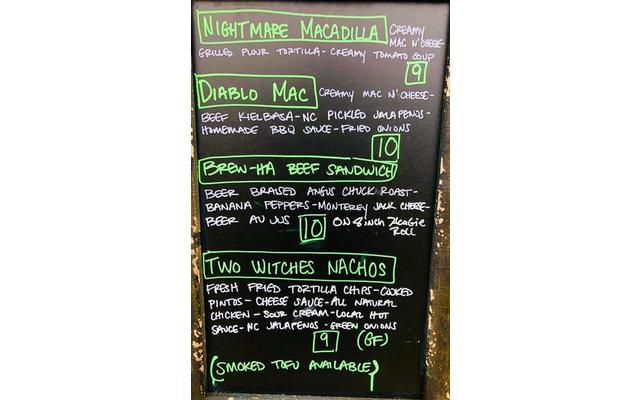 NIGHTMARE MACADILLA CREAMY
MAC N' CHEESE-
GRILLED FLOUR TORTILLA - CREAMY TOMATO SOUP
9
DIABLO MAC CREAMY MAC N' CHEESE-
BEEF KIELBASA - NC PICKLED JALAPENOS -
HOMEMADE BBQ SAUCE - FRIED ONIONS
10
BREW-HA BEEF SANDWICH
BEER BRAISED ANGUS CHUCK ROAST -
BANANA PEPPERS - MONTEREY JACK CHEESE -
BEER AU JUS 10 ON 8 inch Hoagie
ROLL
TWO WITCHES NACHOS
FRESH FRIED TORTILLA CHIPS - COOKED
PINTOS - CHEESE SAUCE - ALL NATURAL
CHICKEN - SOUR CREAM - LOCAL HOT
SAUCE - NC JALAPENOS - GREEN ONIONS
9 (GF)
(SMOKED TOFU AVAILABLE)